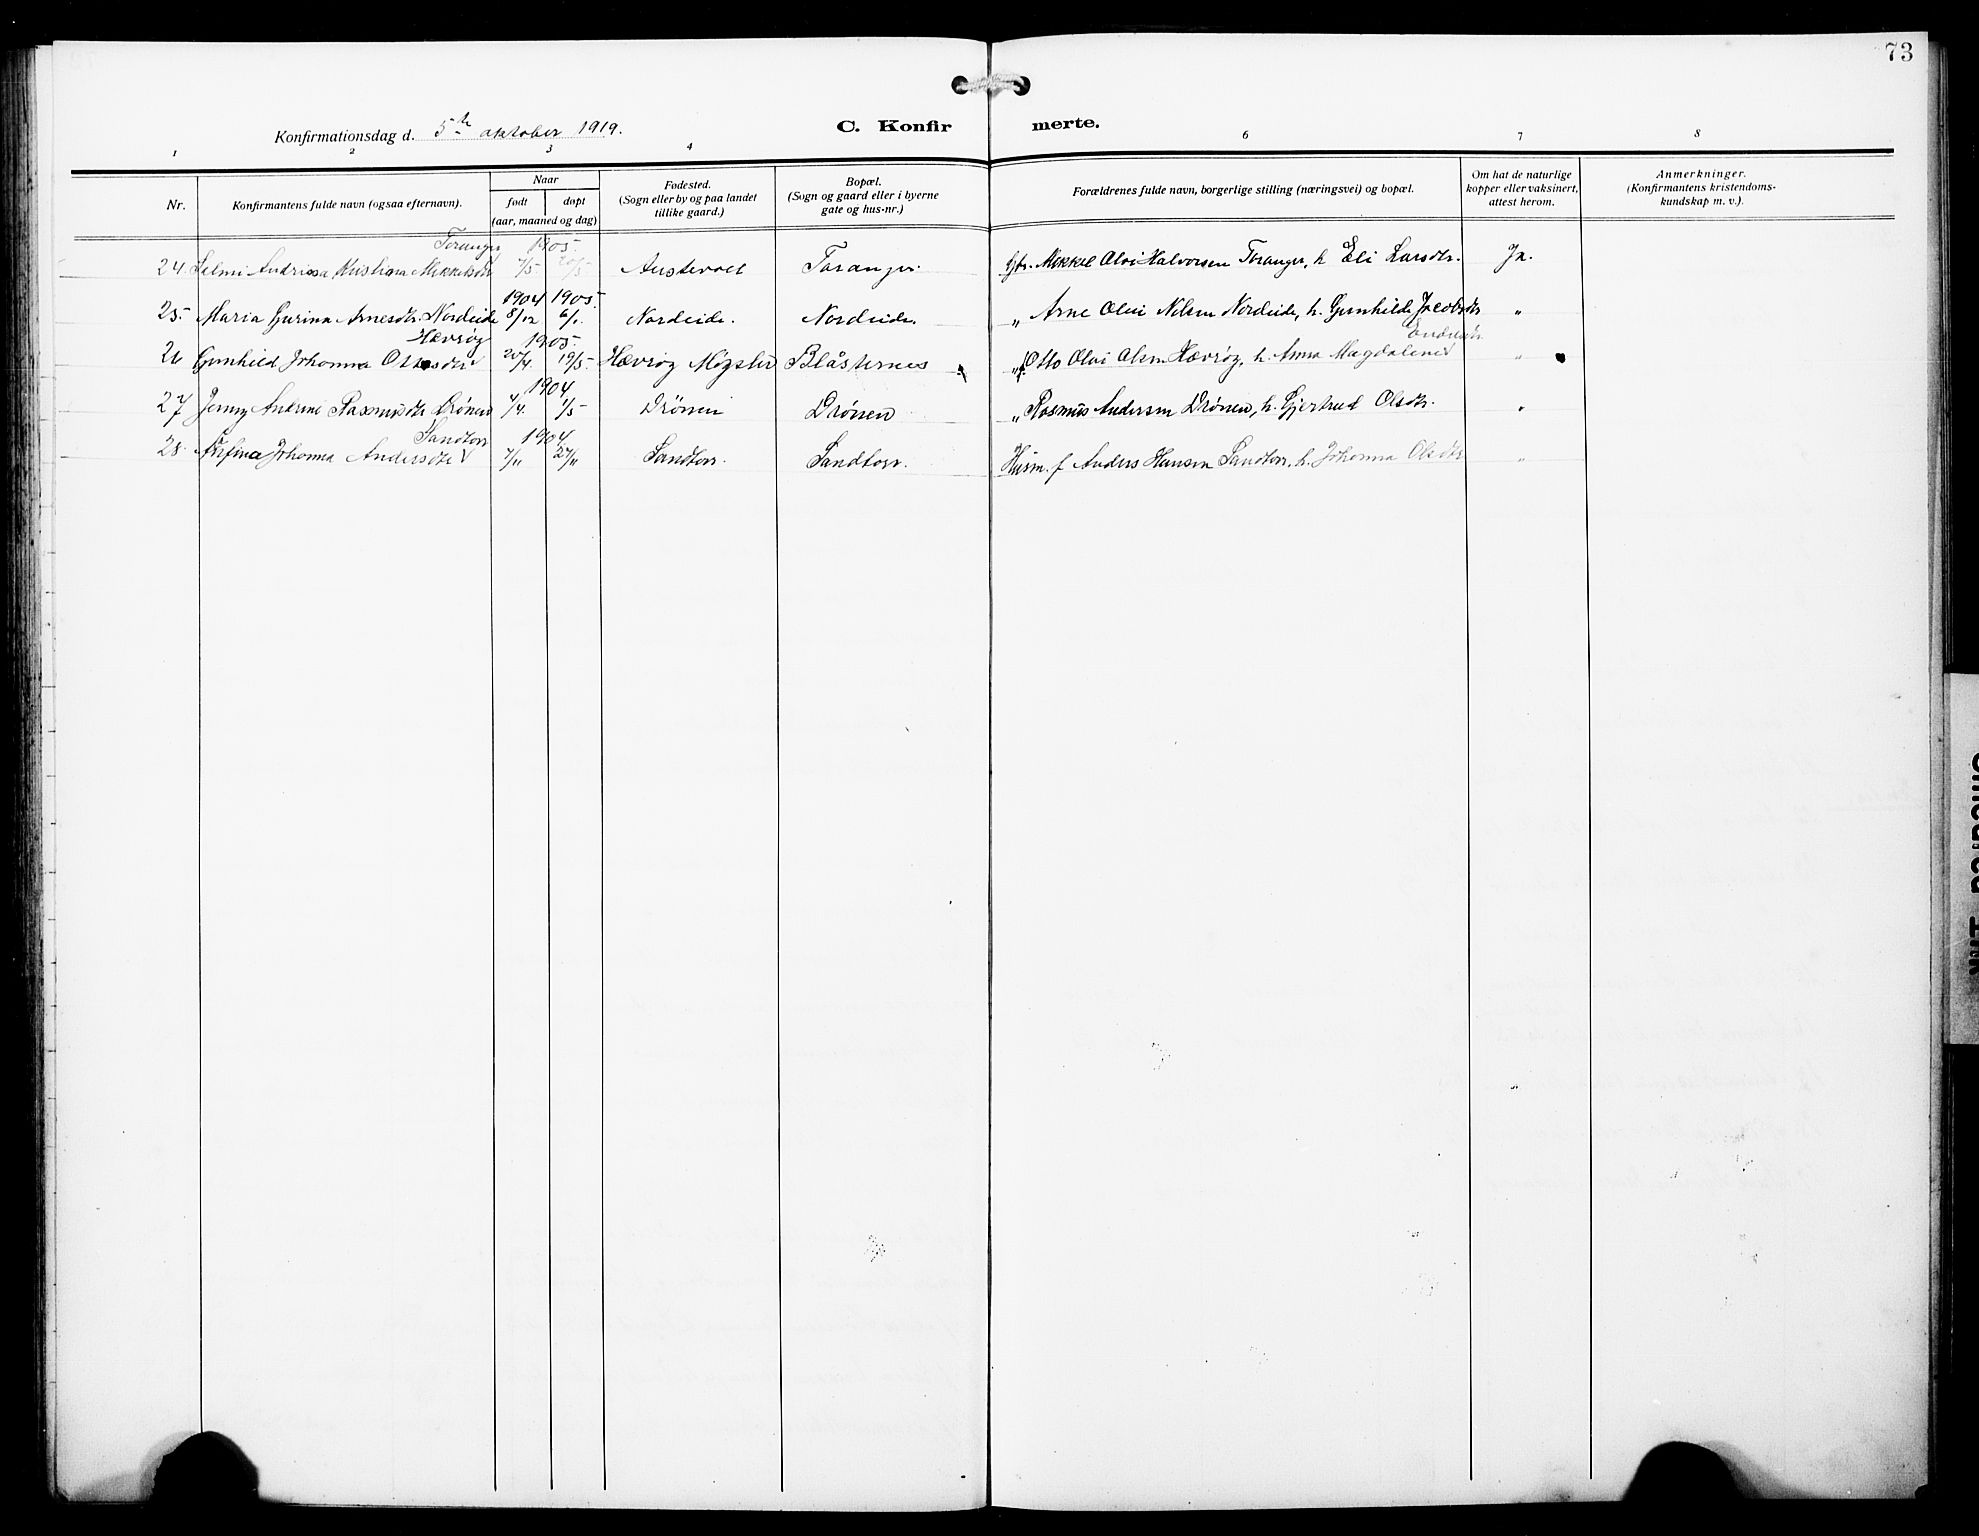 73
Konfirmationsdag d. 5te oktober 1919.
C. Konfirmerte.
1 2 3 4 6 7 8
Nr.
Konfirmantens fulde navn (ogsaa efternavn).
Naar
født
døpt
(aar, maaned og dag)
Fødested.
(Sogn eller by og paa landet
tillike gaard.)
Bopæl.
(Sogn og gaard eller i byerne
gate og hus-nr.)
Forældrenes fulde navn, borgerlige stilling (næringsvei) og bopæl.
Om hat de naturlige
kopper eller vaksinert,
attest herom.
Anmerkninger.
(Konfirmantens kristendoms-
kundskap m. v.).
Toranger 1905.
24. Selmi Andrissa Kristiana Mikkelsdtr 7/5 20/5 Austevoll Toranger. Gbr. Mikkel Olai Halvorsen Toranger, h. Eli Larsdtr. Ja.
1904 1905.
25. Maria Gurina Arnesdtr. Nordeide 8/12 6/1. Nordeide. Nordeide. „ Arne Olai Nilsen Nordeide, h. Gunhilde Jacobsdtr „
Hævrøy 1905. Endresdtr
26 Gunhild Johanna Ottosdtr 20/4. 19/5. Hævrøy Møgster Blåsternes „ f. Otto Olai Olsen Hævrøy, h. Anna Magdalene „
1904
27 Jenny Andrine Rasmusdtr Drønen 4/4. 1/5 Drönen Drönen „ Rasmus Andersen Drönen, h. Gjertrud Olsdtr. „
Sandtorr 1904.
28. Arfina Johanna Andersdtr 7/11 27/11 Sandtorr. Sandtorr. Husm. f Anders Hansen Sandtorr, h. Johanna Olsdtr „